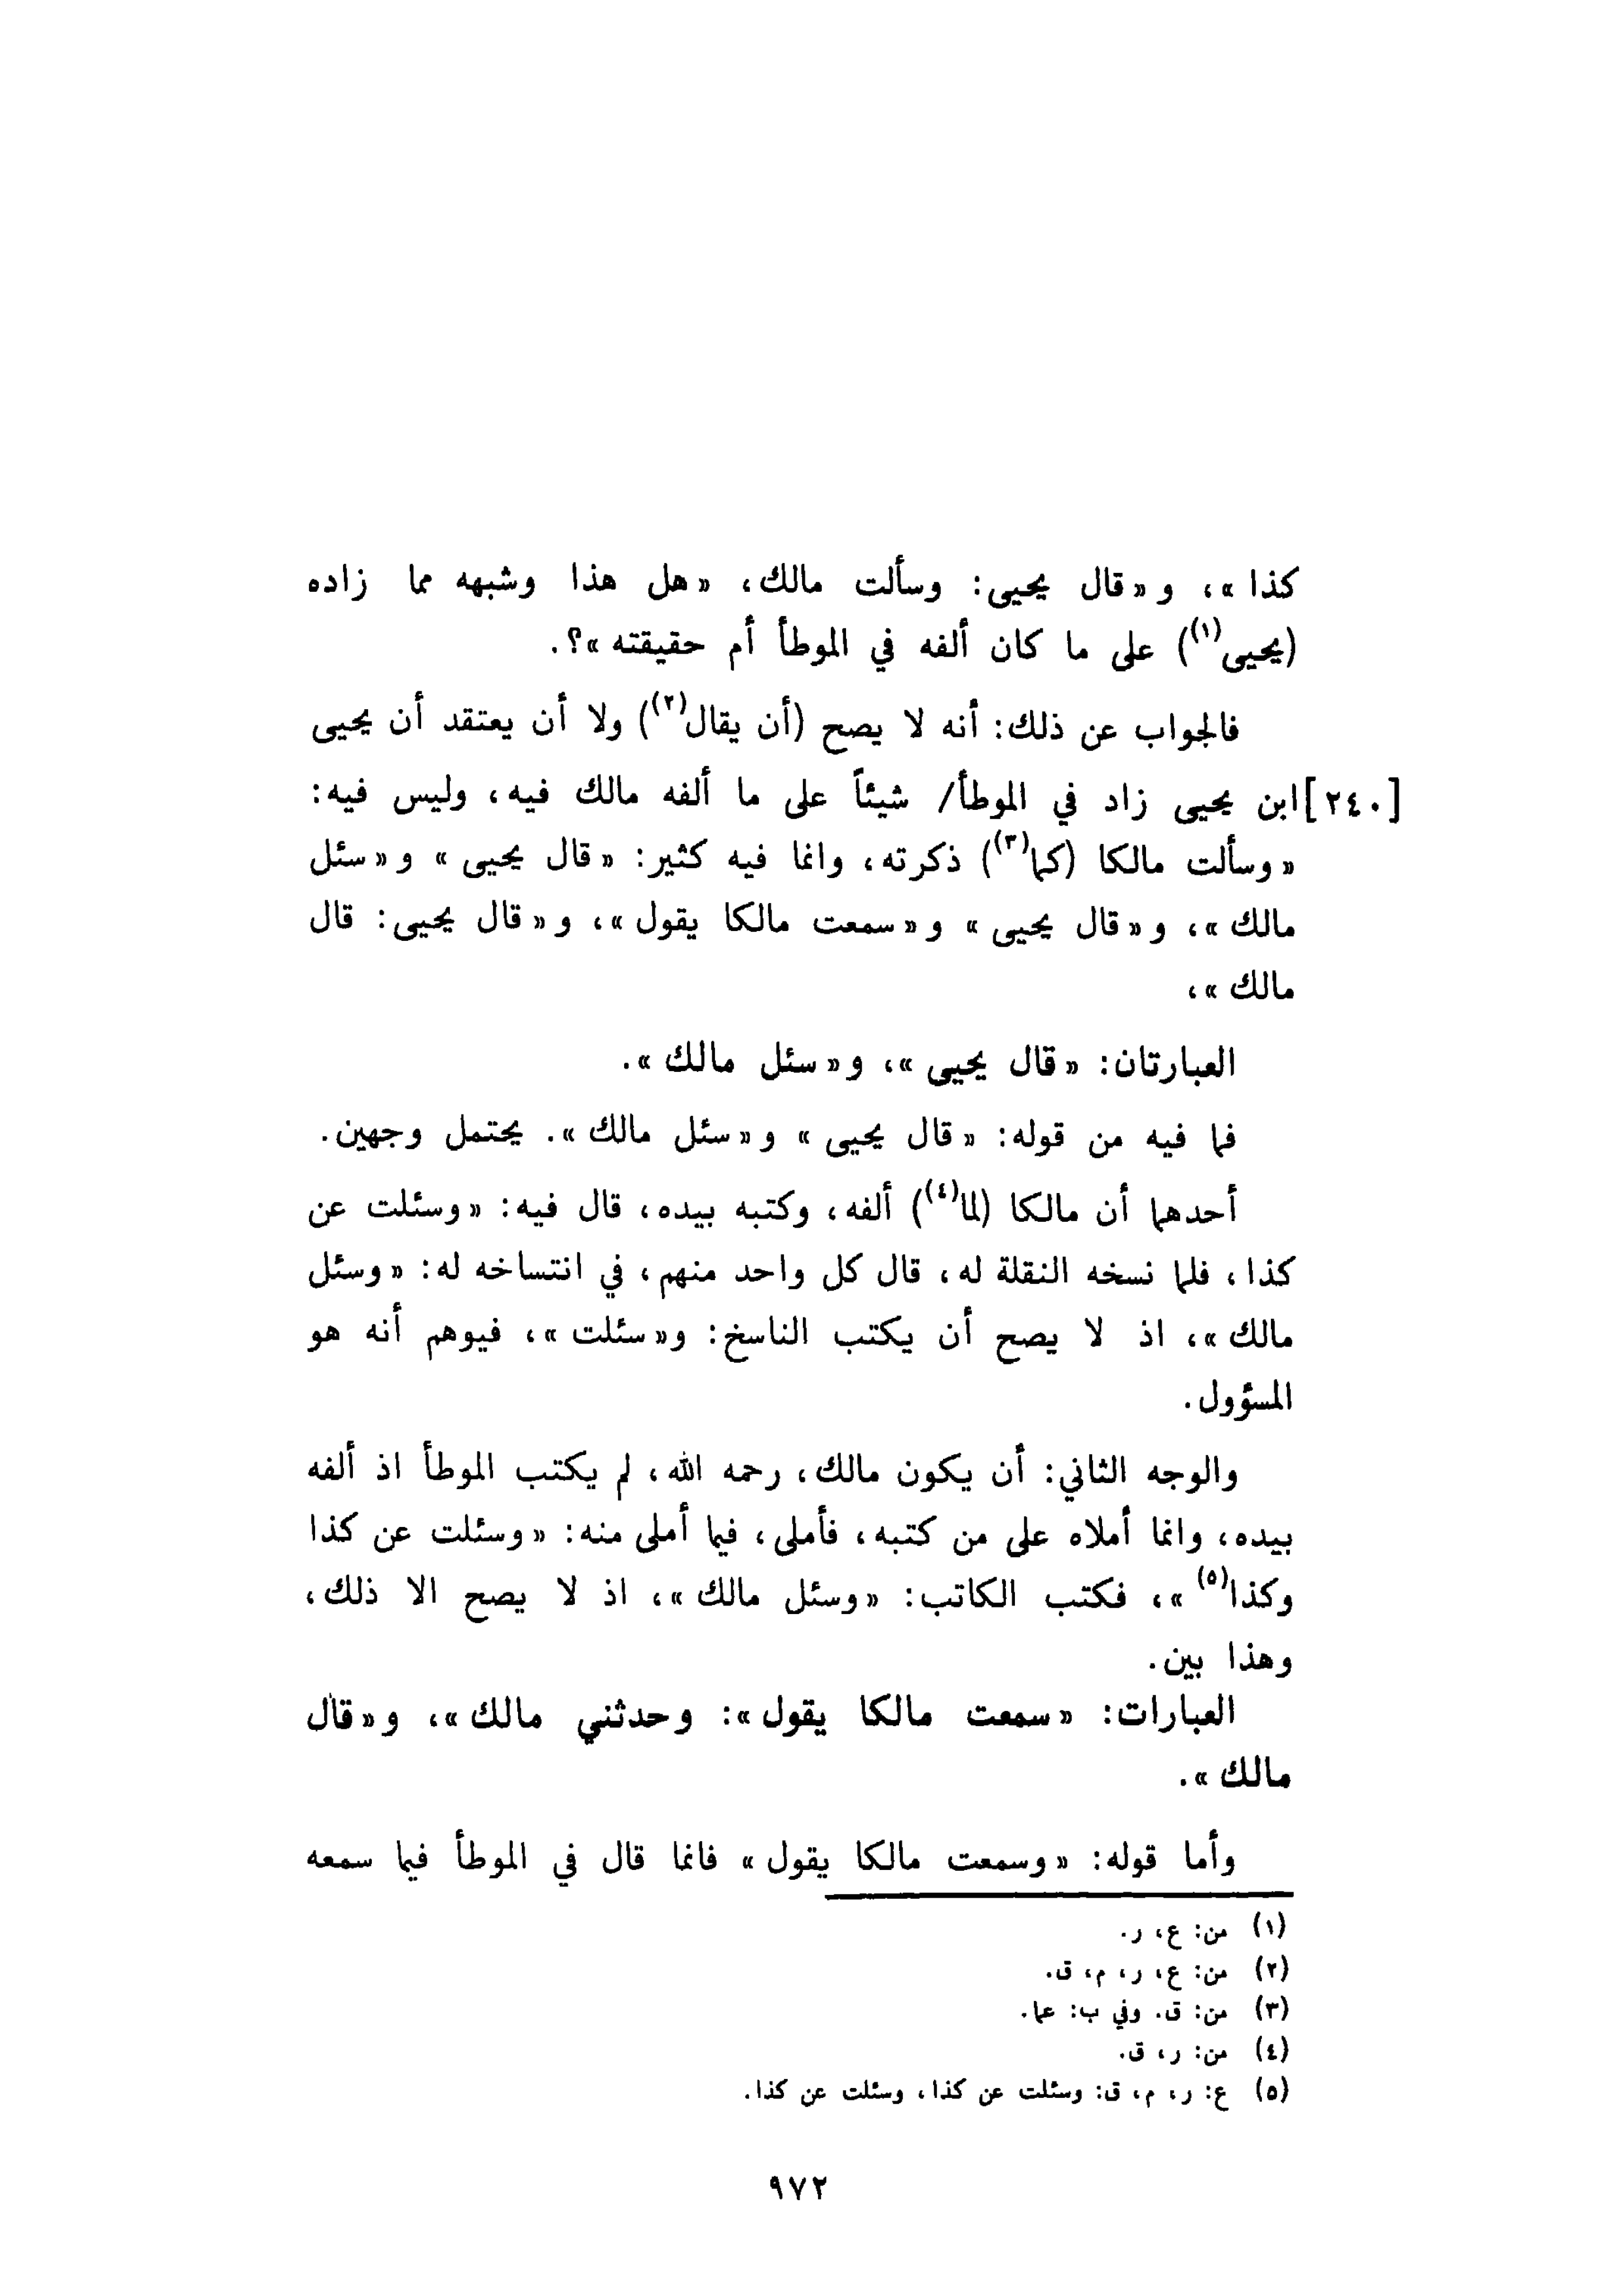 كذا »، و « قال يحيى: وسألت مالك، « هل هذا وشبهه مما زاده
(يحيى(١)) على ما كان ألفه في الموطأ أم حقيقته »؟.
فالجواب عن ذلك: أنه لا يصح (أن يقال(٢)) ولا أن يعتقد أن يحيى
[٢٤٠] ابن يحيى زاد في الموطأ/ شيئاً على ما ألفه مالك فيه، وليس فيه:
« وسألت مالكا (كما(٣)) ذكرته، وانما فيه كثير: « قال يحيى » و « سئل
مالك »، و « قال يحيى » و « سمعت مالكا يقول »، و « قال يحيى: قال
مالك »،
العبارتان: « قال يحيى »، و « سئل مالك ».
فما فيه من قوله: « قال يحيى » و « سئل مالك ». يحتمل وجهين.
أحدهما أن مالكا (لما(٤)) ألفه، وكتبه بيده، قال فيه: « وسئلت عن
كذا، فلما نسخه النقلة له، قال كل واحد منهم، في انتساخه له: « وسئل
مالك »، اذ لا يصح أن يكتب الناسخ: و« سئلت »، فيوهم أنه هو
المسؤول.
والوجه الثاني: أن يكون مالك، رحمه الله، لم يكتب الموطأ اذ ألفه
بيده، وانما أملاه على من كتبه، فأملى، فيما أملى منه: « وسئلت عن كذا
وكذا(٥) »، فكتب الكاتب: « وسئل مالك »، اذ لا يصح الا ذلك،
وهذا بين.
العبارات: « سمعت مالكا يقول »: وحدثني مالك »، و « قال
مالك ».
وأما قوله: « وسمعت مالكا يقول » فانما قال في الموطأ فيما سمعه
(١) من: ع، ر.
(٢) من: ع، ر، م، ق.
(٣) من: ق. وفي ب: عما.
(٤) من: ر، ق.
(٥) ع: ر، م، ق: وسئلت عن كذا، وسئلت عن كذا.
٩٧٢